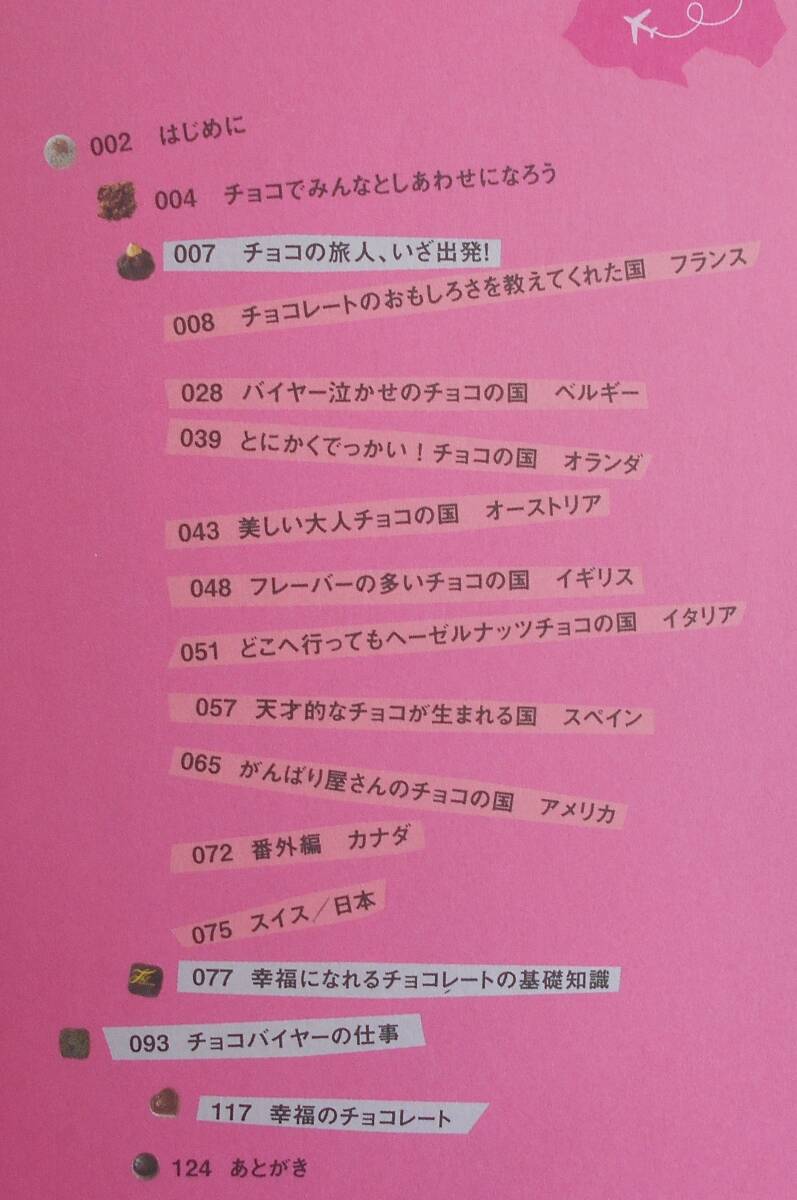 002 はじめに
004 チョコでみんなとしあわせになろう
007 チョコの旅人、いざ出発!
008 チョコレートのおもしろさを教えてくれた国 フランス
028 バイヤー泣かせのチョコの国 ベルギー
039 とにかくでっかい!チョコの国 オランダ
043 美しい大人チョコの国 オーストリア
048 フレーバーの多いチョコの国 イギリス
051 どこへ行ってもヘーゼルナッツチョコの国 イタリア
057 天才的なチョコが生まれる国 スペイン
065 がんばり屋さんのチョコの国 アメリカ
072 番外編 カナダ
075 スイス/日本
077 幸福になれるチョコレートの基礎知識
093 チョコバイヤーの仕事
117 幸福のチョコレート
124 あとがき